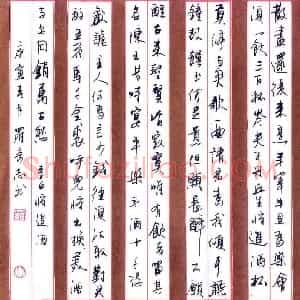 散盡還復來烹羊宰牛且爲樂會
須一飲三百杯岑夫子丹丘生將進酒杯
莫停與君歌一曲請君爲我傾耳聽
鐘鼓饌玉何足貴但願長醉不願
醒古來聖賢皆寂寞惟有飲者留其
名陳王昔時宴平樂斗酒十千恣
歡謔主人何爲言少錢徑須沽取對君
酌五花馬千金裘呼兒將出換美酒
與爾同銷萬古愁 李白將進酒
庚寅